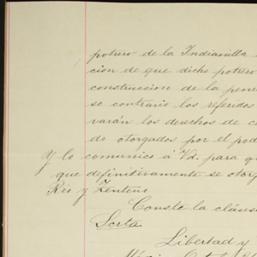 potrero de la Indianilla
cion de que dicho potrero
construccion de la peni
se contrario los referidos
varán los derechos de c
de otorgados por el pod
Y lo comunico á Vd. para q
que definitivamente se otorg
Rio y Zenteno
Conste la cláus
Sexta
Libertad y